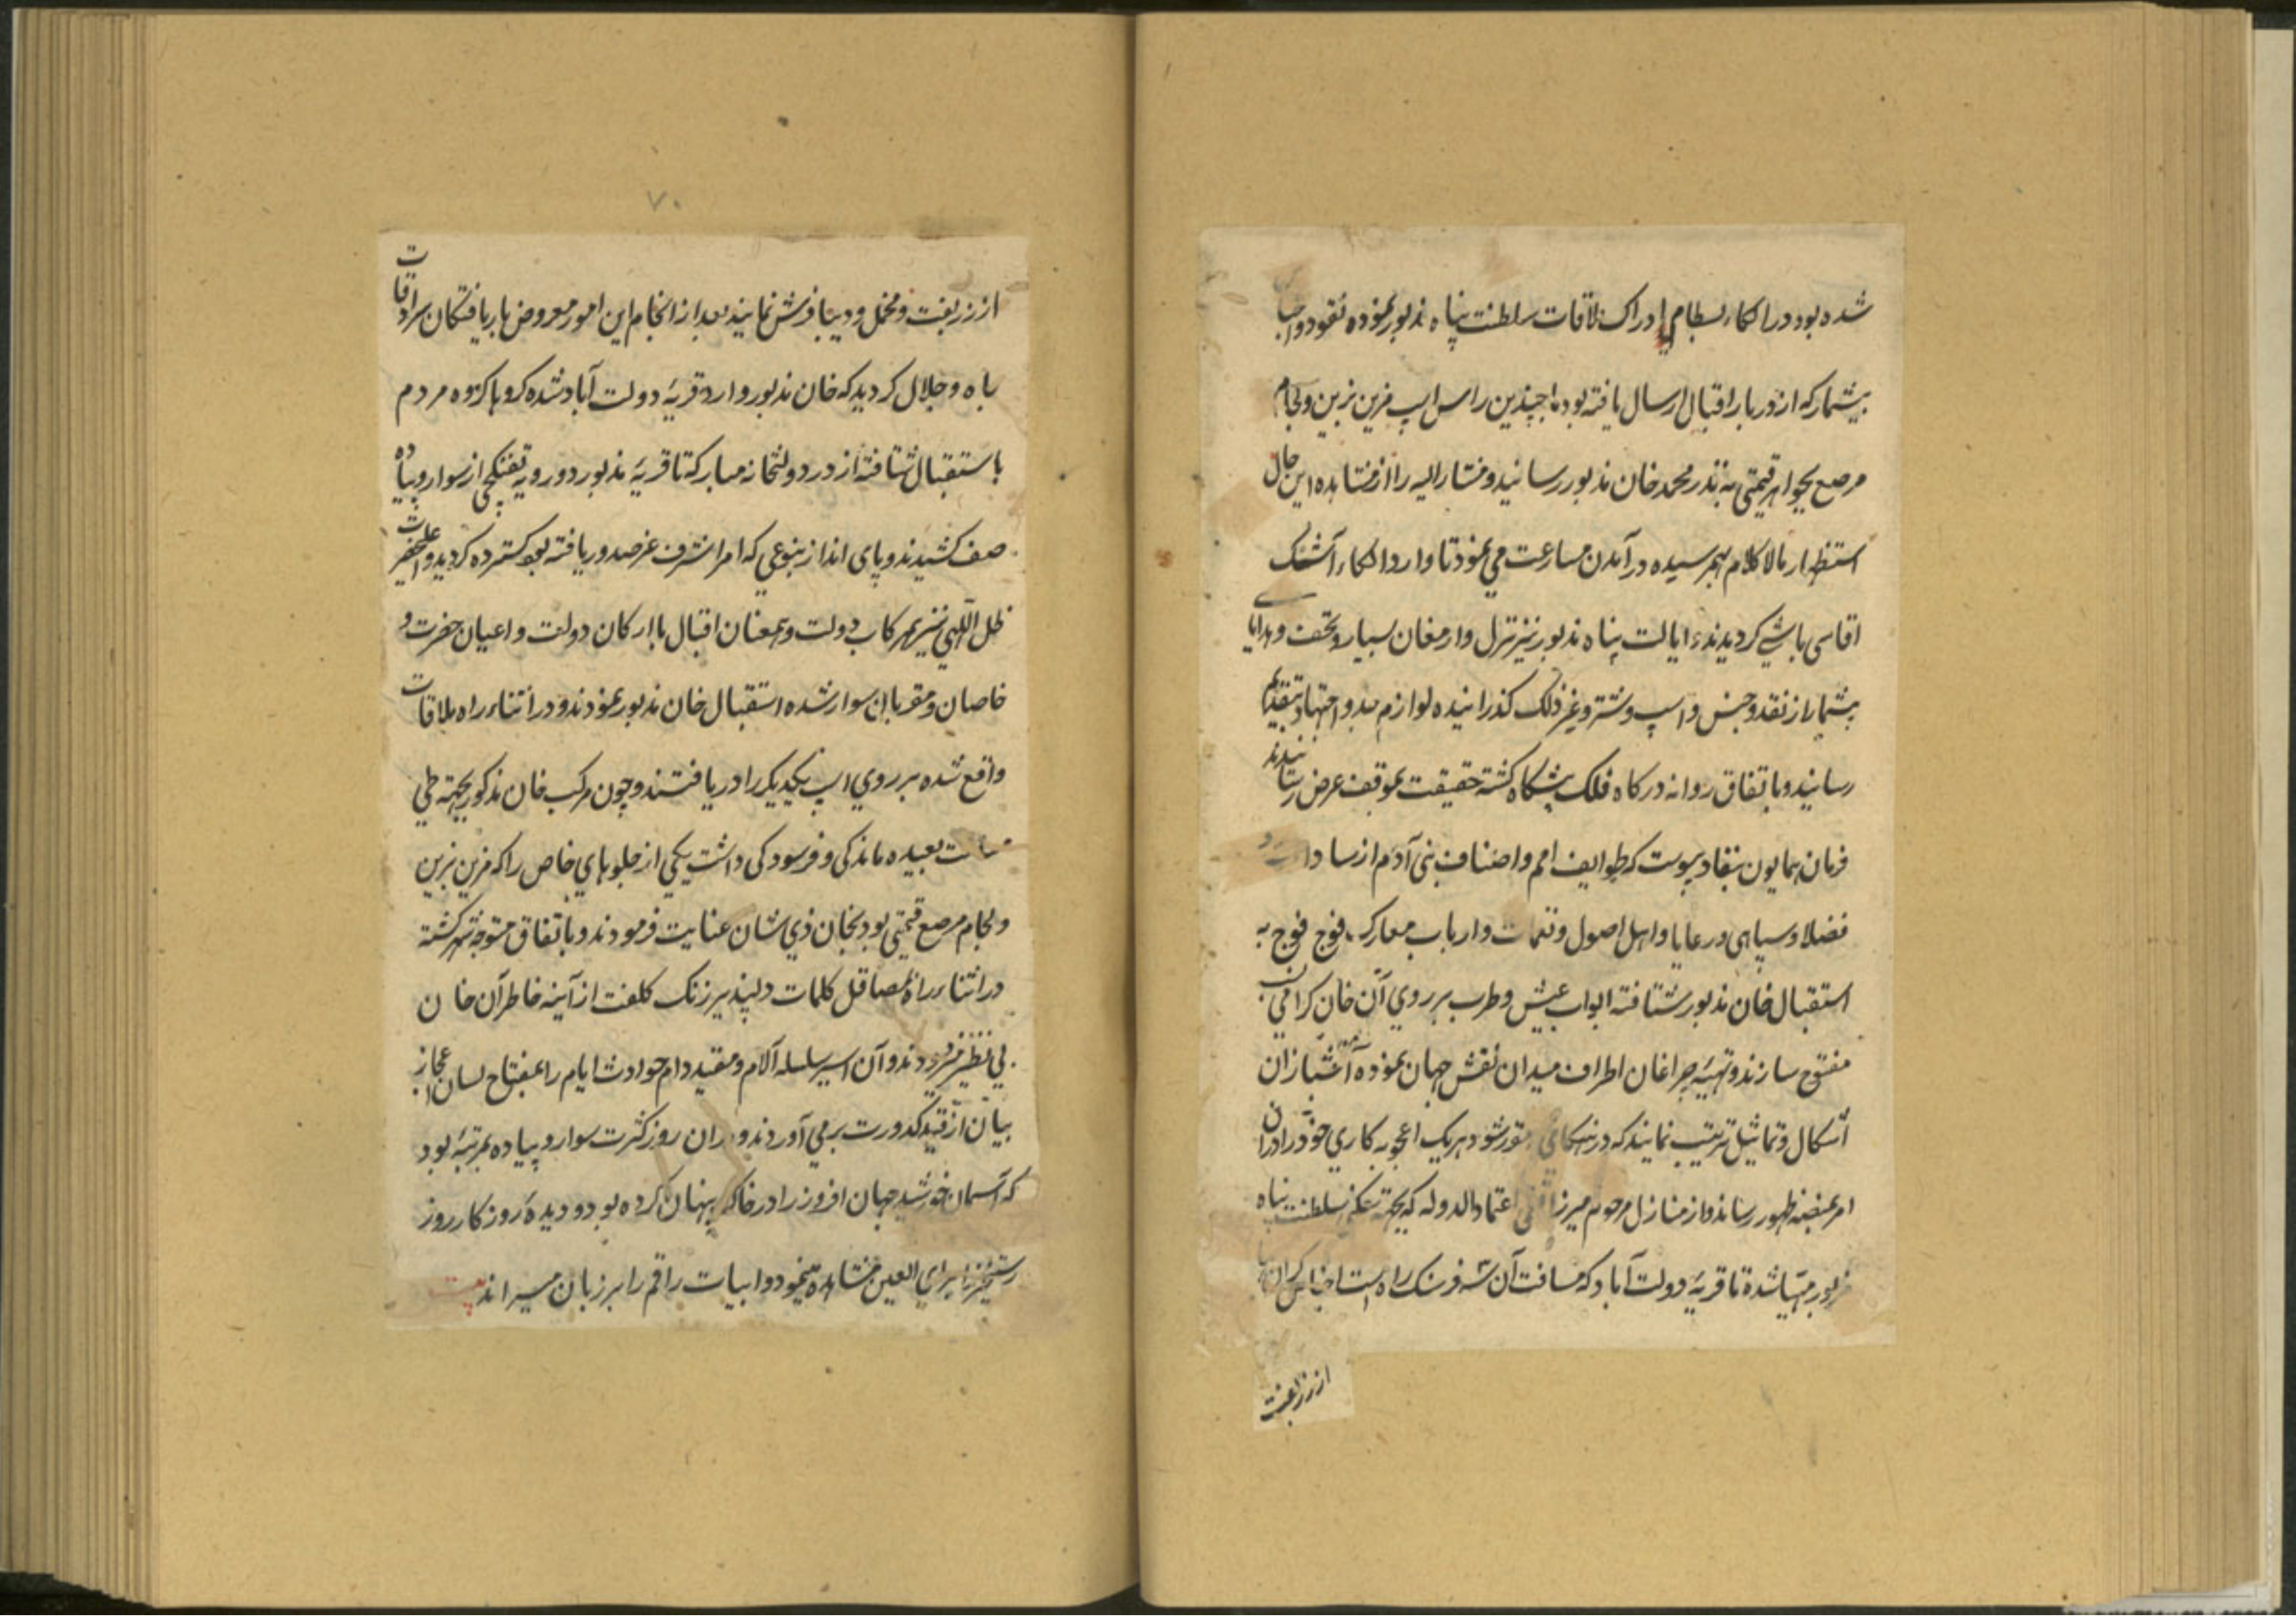 شده بود در الکاء بسطام ادراک ملاقات سلطنت پناه مذبور نموده نقود و اجناس
بیشمار که از دربار اقبال ارسال یافته بود با چندین راس اسپ مزین بزین و لجام
مرصع بجواهر قیمتی به نذر محمد خان مذبور رسانید و مشار الیه را از مشاهده این حال
استظهار مالا کلام بهمرسیده در آمدن مسارعت می نمود تا وارد الکاء آشک
اقاسی باشی کردیدند ایالت پناه مذبور نیز نزل و ارمغان بسیار و تحف و هدایای
بیشمار از نقد و جنس و اسپ و شتر و غیر ذلک کذرانیده لوازم جد و اجتهاد بتقدیم
رسانید و باتفاق روانه درکاه فلک پیشکاه کشته حقیقت بموقف عرض رسانیدند
فرمان همایون بنفاد پیوست که طوایف امم و اصناف بنی آدم از سادات و
فضلا و سپاهی و رعایا و اهل اصول و نغمات و ارباب معارک فوج فوج به
استقبال خان مذبور شتافته ابواب عیش و طرب بر روی آن خان کرامی
مفتوح سازند و تهیهٔ چراغان اطراف میدان نقش جهان نموده آتشبازان
اشکال و تماثیل ترتیب نمایند که در هنکامی مقرر شود هریک اعجوبه کاری خود را دران
امر بمنصهٔ ظهور رساند و از منازل مرحوم میرزا تقی اعتماد الدوله که بجهته سلطنت پناه
مزبور مهیا شده تا قریهٔ دولت آباد که مسافت آن سه فرسنک راه است اجناس کران بها
از زربفت
۷۰
از زربفت و مخمل و دیبا فرش نمایند بعد از انجام این امور معروض باریافتکان سرادقات
جاه و جلال کردید که خان مذبور وارد قریهٔ دولت آباد شده کروها کروه مردم
باستقبال شتافته از در دولتخانه مبارکه تا قریهٔ مذبور دو رویه تفنکچی از سوار و پیاده
صف کشیدند و پای انداز بنوعی که امر اشرف عز صدور یافته بود کسترده کردید و اعلیحضرت
ظل اللهی نیز بهمرکاب دولت و همعنان اقبال با ارکان دولت و اعیان حضرت و
خاصان و مقربان سوار شده استقبال خان مذبور نمودند و در اثناء راه ملاقات
واقع شده بر روی اسپ یکدیکر را دریافتند و چون مرکب خان مذکور بجهته طی
بعیده ماندکی و فرسودکی داشت یکی از جلوهای خاص را که مزین بزین
و لجام مرصع قیمتی بود بخان ذی شان عنایت فرمودند و باتفاق متوجه شهر کشته
در اثناء راه بمصاقل کلمات دلپذیر زنک کلفت از آینه خاطر آن خان
بی نظیر می زدودند و آن اسیر سلسله آلام و مقید دام حوادث ایام را بمفتاح لسان اعجاز
بیان از قید کدورت بر می آوردند و دران روز کثرت سوار و پیاده بمرتبهٔ بود
که آسمان خورشید جهان افروز را در خاک پنهان کرده بود و دیدهٔ روزکار روز
رستخیز را برای العین مشاهده مینمود و ابیات راقم را بر زبان میراند بیت